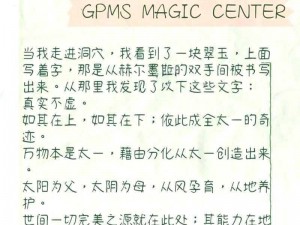 GPMS MAGIC CENTER
当我走进洞穴，我看到了一块翠玉，上面
写着字，那是从赫尔墨斯的双手间被书写
出来。从那里我发现了以下这些文字：
真实不虚。
如其在上，如其在下；彼此成全太一的奇
迹。
万物本是太一，藉由分化从太一创造出来。
太阳为父，太阴为母，从风孕育，从地养
护。
世间一切完美之源就在此处；其能力在地